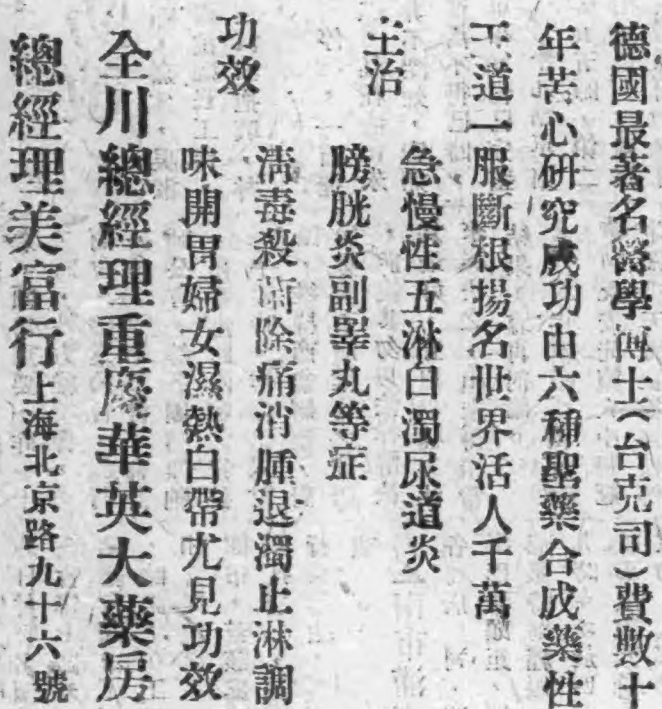 德國最著名醫學博士(台克司)費數十
年苦心研究成功由六種聖藥合成藥性
王道一服斷根揚名世界活人千萬
主治
急慢性五淋白濁尿道炎
膀胱炎副睪丸等症
功效
淸毒殺菌除痛消腫退濁止淋調
味開胃婦女濕熱白帶尤見功效
全川總經理重慶華英大藥房
總經理美富行上海北京路九十六號